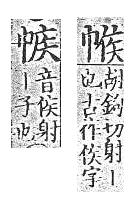 帿
胡鉤切射丨
也古作侯字
音侯射
丨子